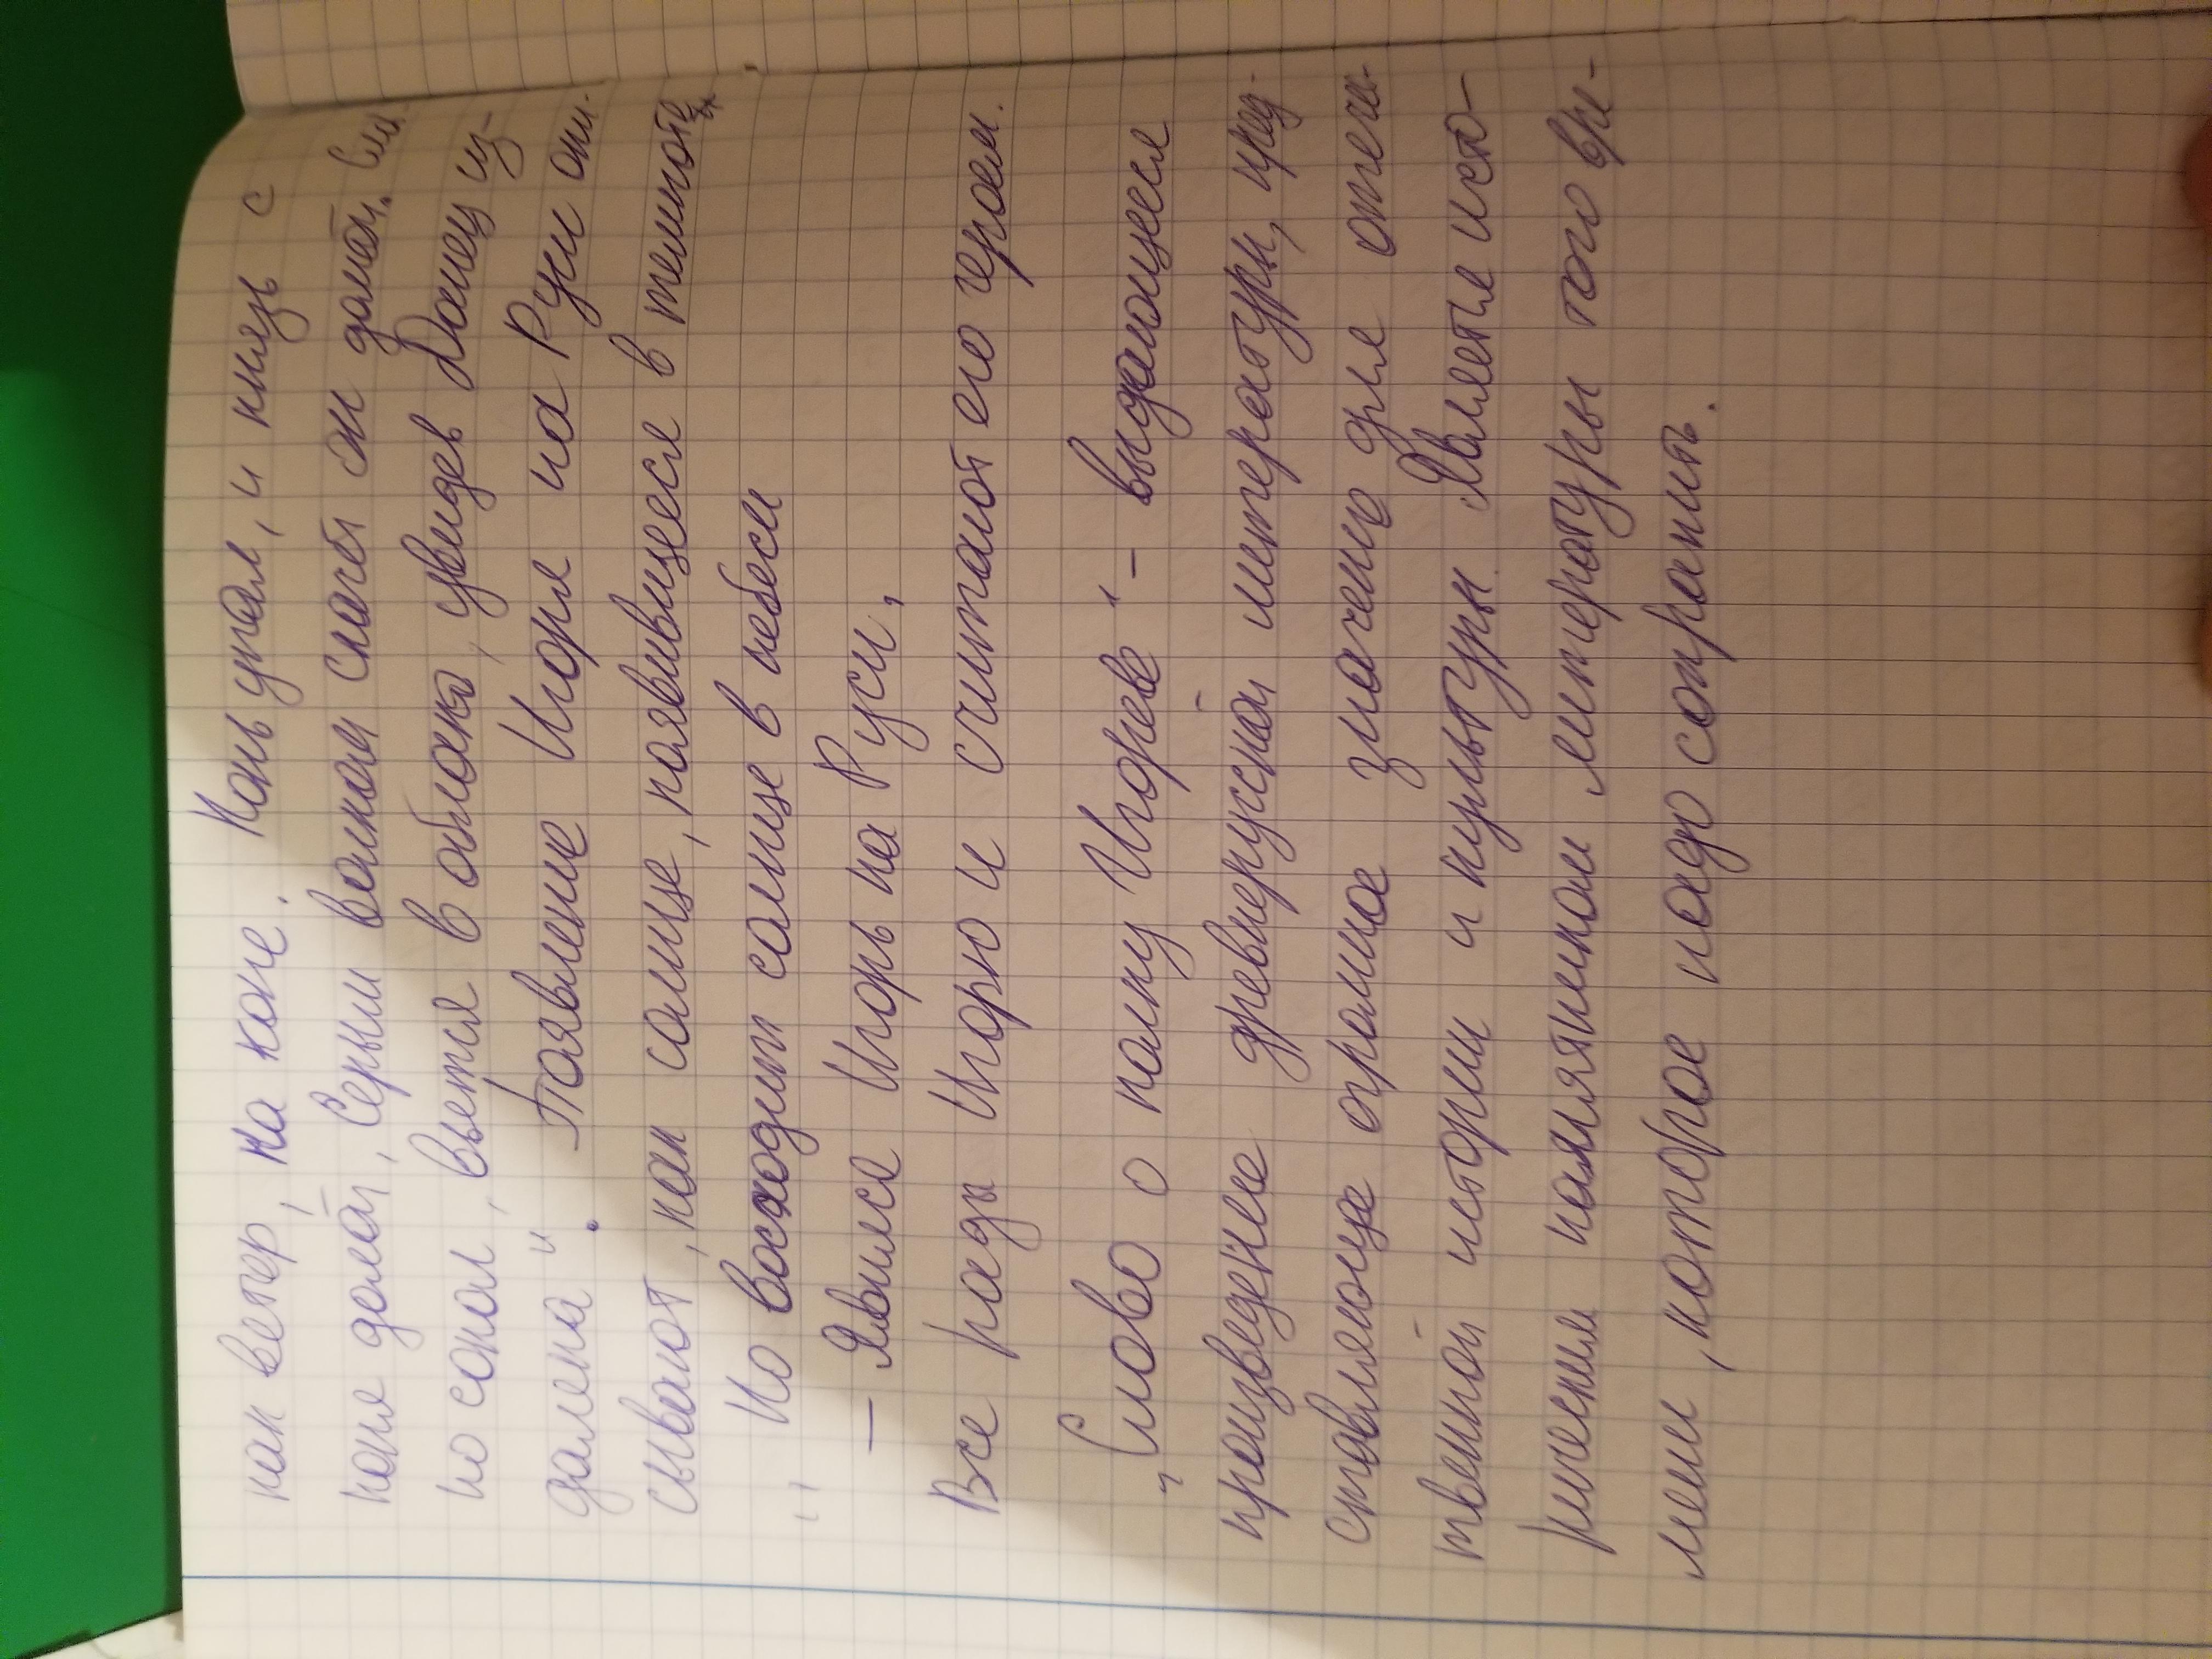 как ветер, на коне. Конь упал, и князь с
коня долой, Серым волком скачет он домой.
но сокол, вьется в облака, увидев Донец из-
далека". Появление Игоря на Руси опи-
сывают, как солнце, появившееся в темноте
" Но восходит солнце в небеси
— Явился Игорь на Руси,
Все рады Игорю и считают его героем.
„Слово о полку Игореве" – выдающееся
произведение древнерусской литературы, пред-
ставляюще огромное значение для отечес-
твенной истории и культуры. Является исто-
рическим памятником литературы того вре-
мени, которое надо сохранить.